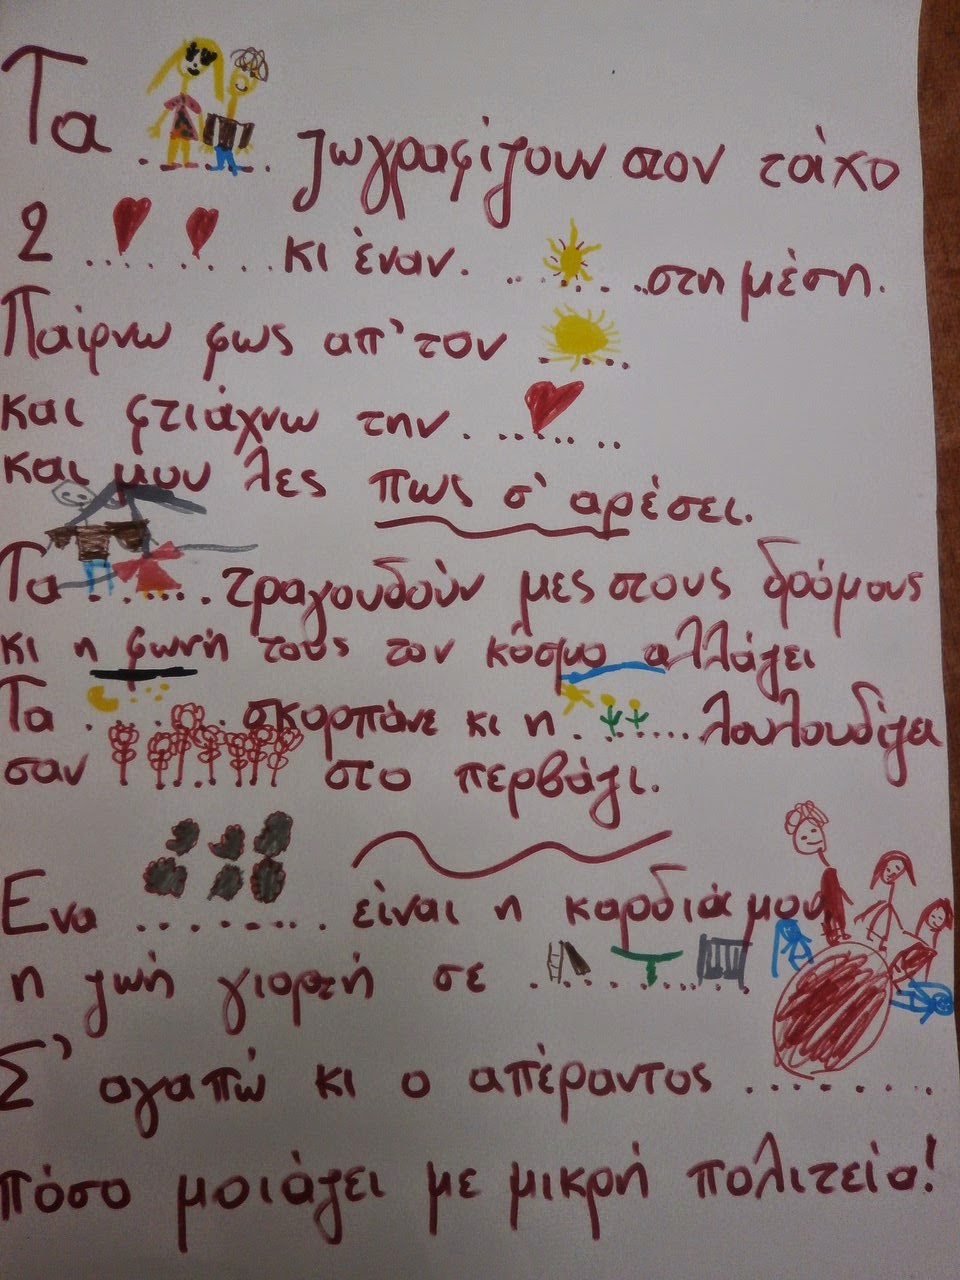 Τα ........ ζωγραφίζουν στον τοίχο
2 ............ κι έναν. ........ στη μέση.
Παίρνω φως απ' τον ......
και φτιάχνω την ........
και μου λες πως σ' αρέσει.
Τα ....... τραγουδούν μες στους δρόμους
κι η φωνή τους τον κόσμο αλλάζει
Τα ........ σκορπάνε κι η ....... λουλουδίζει
σαν ........ στο περβάζι.
Ενα ........ είναι η καρδιά μου
η ζωή γιορτή σε ..........
Σ' αγαπώ κι ο απέραντος ........
πόσο μοιάζει με μικρή πολιτεία!